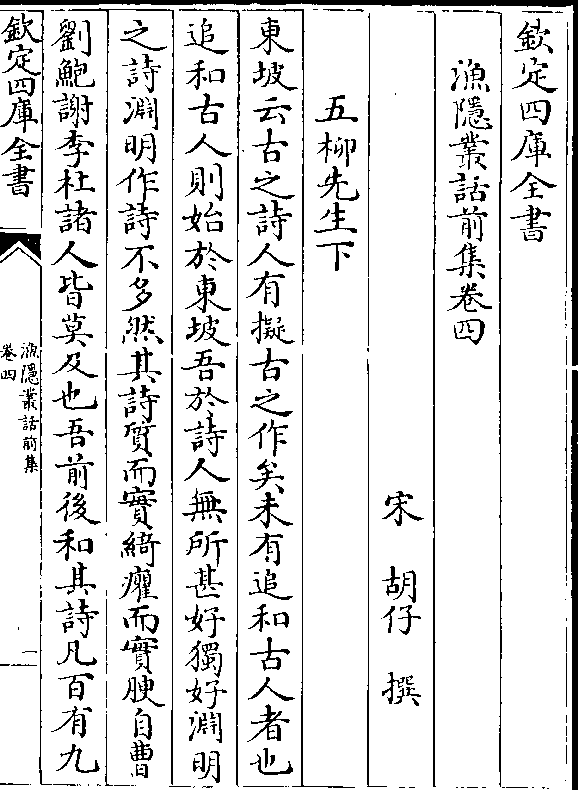 欽定四庫全書
漁隱叢話前集卷四
宋 胡仔 撰
五柳先生下
東坡云古之詩人有擬古之作矣未有追和古人者也
追和古人則始於東坡吾於詩人無所甚好獨好淵明
之詩淵明作詩不多然其詩質而實綺癯而實腴自曹
劉鮑謝李杜諸人皆莫及也吾前後和其詩凡百有九
欽定四庫全書
漁隱叢話前集
卷四
一